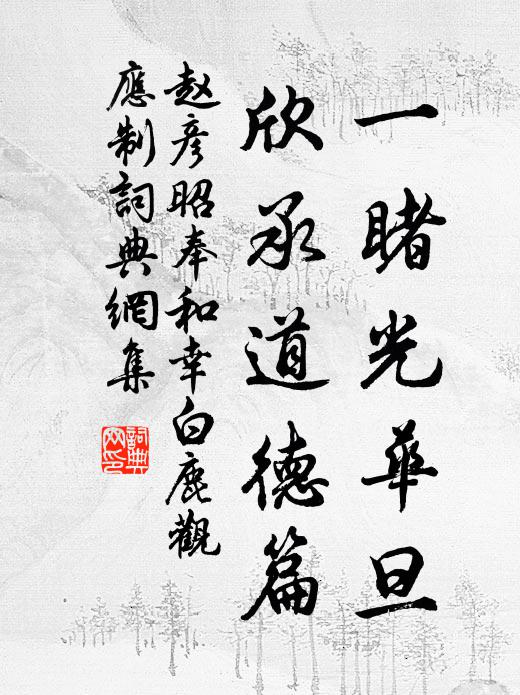 一睹光華旦
欣承道德篇
赵彦昭奉和幸白鹿觀
應制詞典網集
詞典
网印